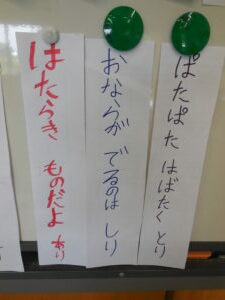 ぱたぱた はばたく とり
おならが でるのは しり
はたらき ものだよ あり